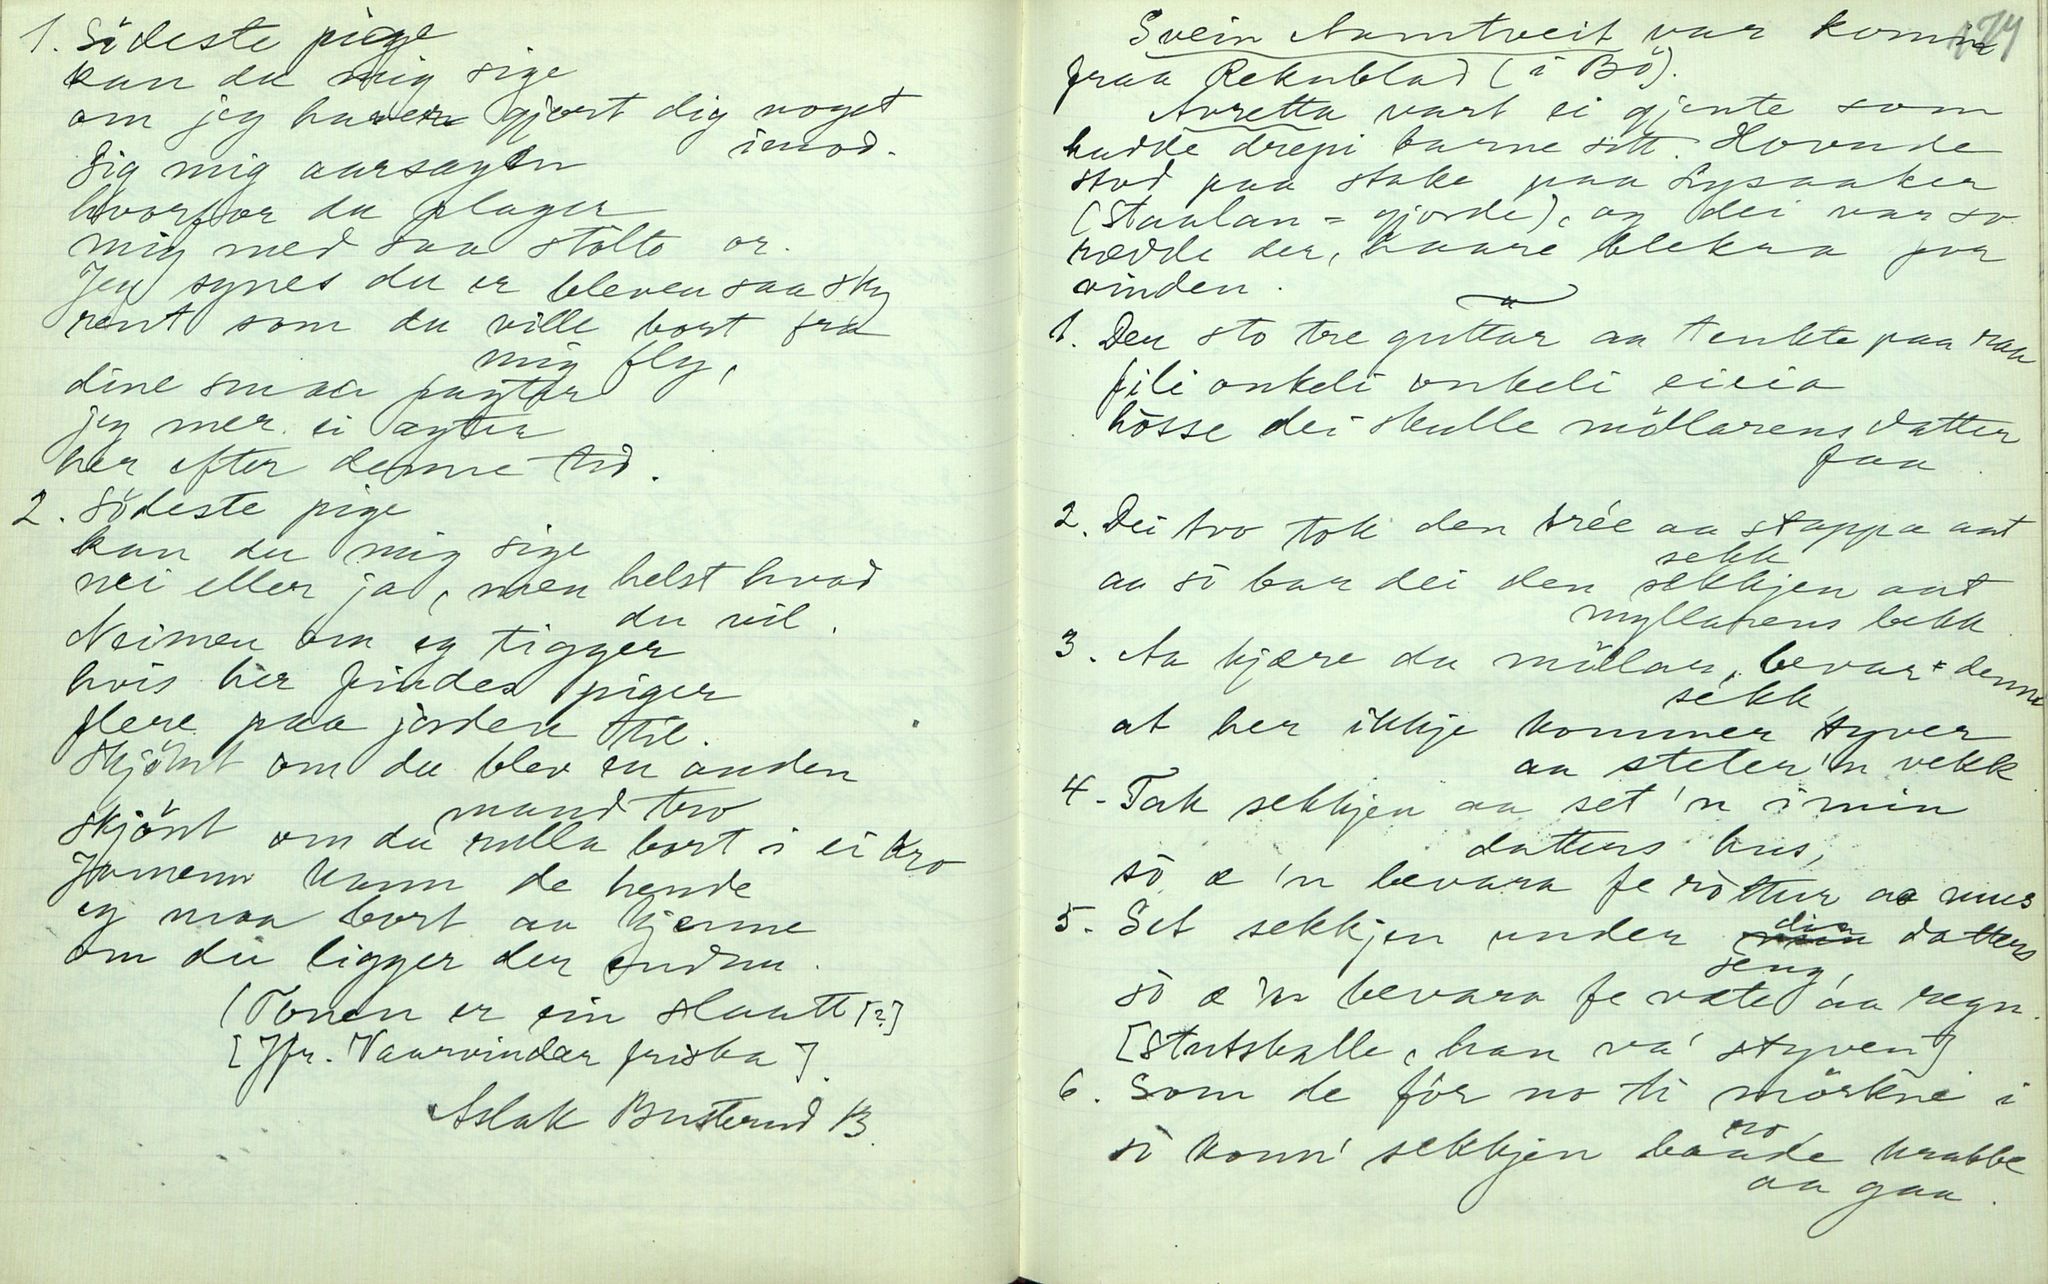 1. Södeste pige
kan du mig sige
om jeg haver gjort dig noget
imod.
Sig mig aarsagen
hvorfor du plager
mig med saa stolte or.
Jeg synes du er bleven saa sky
rent som du ville bort fra
mig fly,
dine smaa fagter
jeg mer ei agter
her efter denne tid.
2. Södeste pige
kan du mig sige
nei eller ja, men helst hvad
du vil.
Neimen om eg tigger
hvis her findes piger
flere paa jorden til.
Skjönt om du blev en anden
mand tro
skjönt om du rulla bort i ei kro
Jamenn kann de hende
eg maa bort aa kjenne
om du ligger der endnu.
(Tonen er ein slaatt [?]
[Jfr. Vaarvindar friska].
Aslak Busterud B.
174
Svein Namtveit var komin
fraa Rekablad (i Bö).
Avretta vart ei gjente som
hadde drepi barne sitt. Hovude
stod paa stake paa Lysaaker
(Staulan = gjorde), og dei var so
rædde der, haare blekra for
vinden.
1. Den sto tre guttar aa tenkte paa raa
fili onkeli onkeli eieia
hòsse dei skulle möllarens datter
faa.
2. Dei tvo tok den trée aa stappa aut
sekk
aa sò bar dei den sekkjen aut
myllarens bekk
3. Aa kjære du möllar, bevar denne
sekk
at her ikkje kommer tyver
aa steler'n vekk
4. Tak sekkjen aa set 'n i min
datters hus,
sò æ 'n bevara fe rottur aa mus
5. Set sekkjen under din datters
seng,
sò æ 'n bevara fe væte aa regn.
[Stutskalle, han va' styven]
6. Som de fòr no ti mörkne i
ro
sò konn' sekkjen baade krabbe
aa gaa.